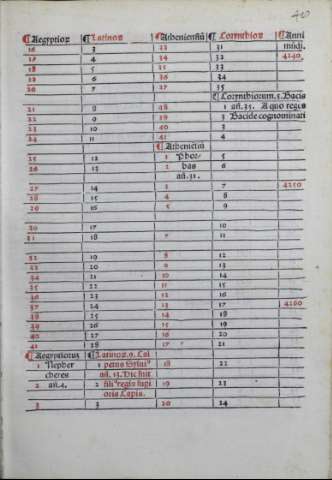 40
¶Aegyptioꝝ ¶Latinoꝝ ¶Atheniensiũ ¶Corinthioꝝ ¶Anni
16 3 23 31 mũdi.
17 4 24 32 4140
18 5 25 33
19 6 26 34
20 7 27 35
¶Corinthiorum.5. Bacis
21 8 28 1 añ.35. A quo reges
22 9 29 2 Bacide cognominati
23 10 40 3
24 11 41 4
¶Atheniensiũ
25 12 1 Phor 5
26 13 2 bas 6
añ.31.
27 14 3 7 4150
28 15 4 8
29 16 5 9
30 17 10
31 18 7 11
32 19 8 12
33 20 9 13
34 21 10 14
35 22 11 15
36 23 12 16
37 24 13 17 4160
38 25 14 18
39 26 15 19
40 27 16 20
41 28 17 21
¶Aegyptiorũ ¶Latinoꝝ.9. Cal
1 Nepher 1 petus Syluiꝰ 18 22
cheres añ. 13. Hic fuit
2 añ.4. 2 filiꝰ regis supi 19 23
oris Capis.
3 3 20 24